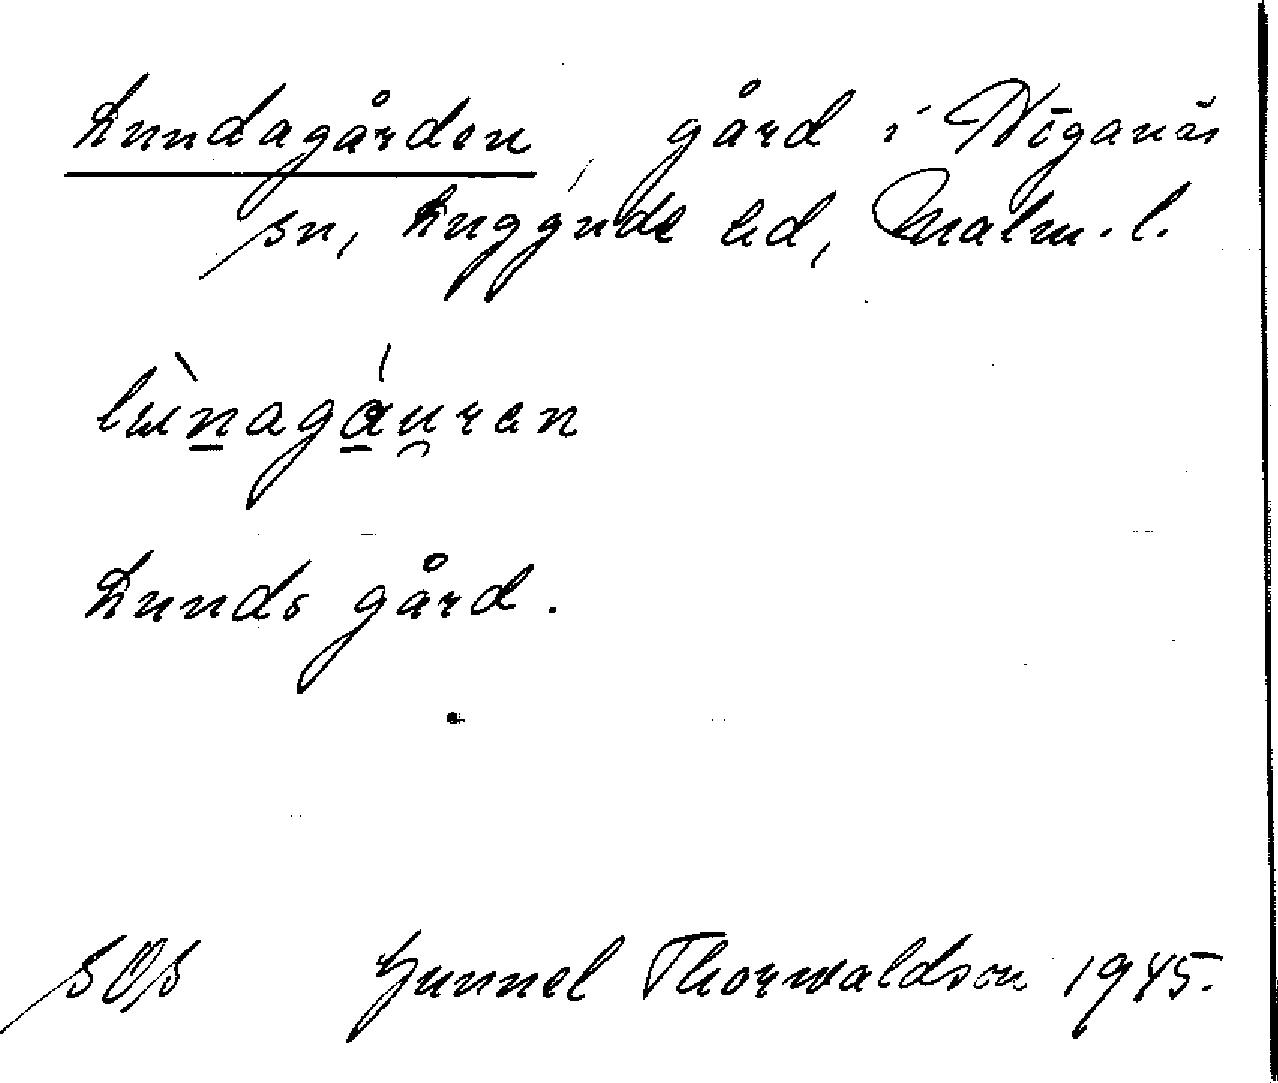 Lundagården, gård i Höganäs
sn, Luggude hd, Malm. l.
lùnagáuren
Lunds gård.
Gunnel Thorwaldson 1945.